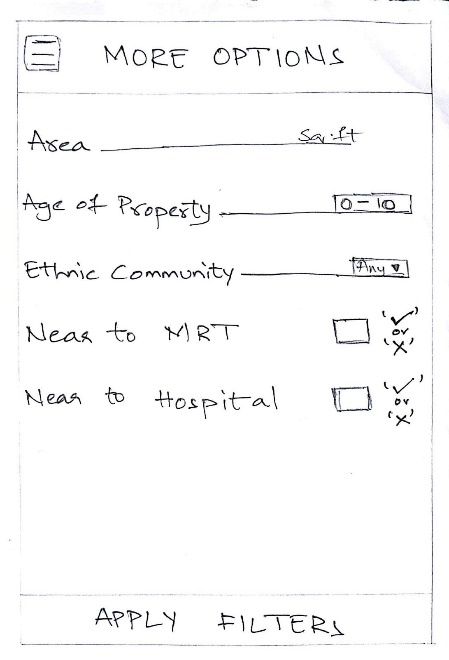 MORE OPTIONS
Area Sq.ft
Age of Property 0-10
Ethnic Community Any
Near to MRT '✓' or 'X'
Near to Hospital '✓' or 'X'
APPLY FILTERS